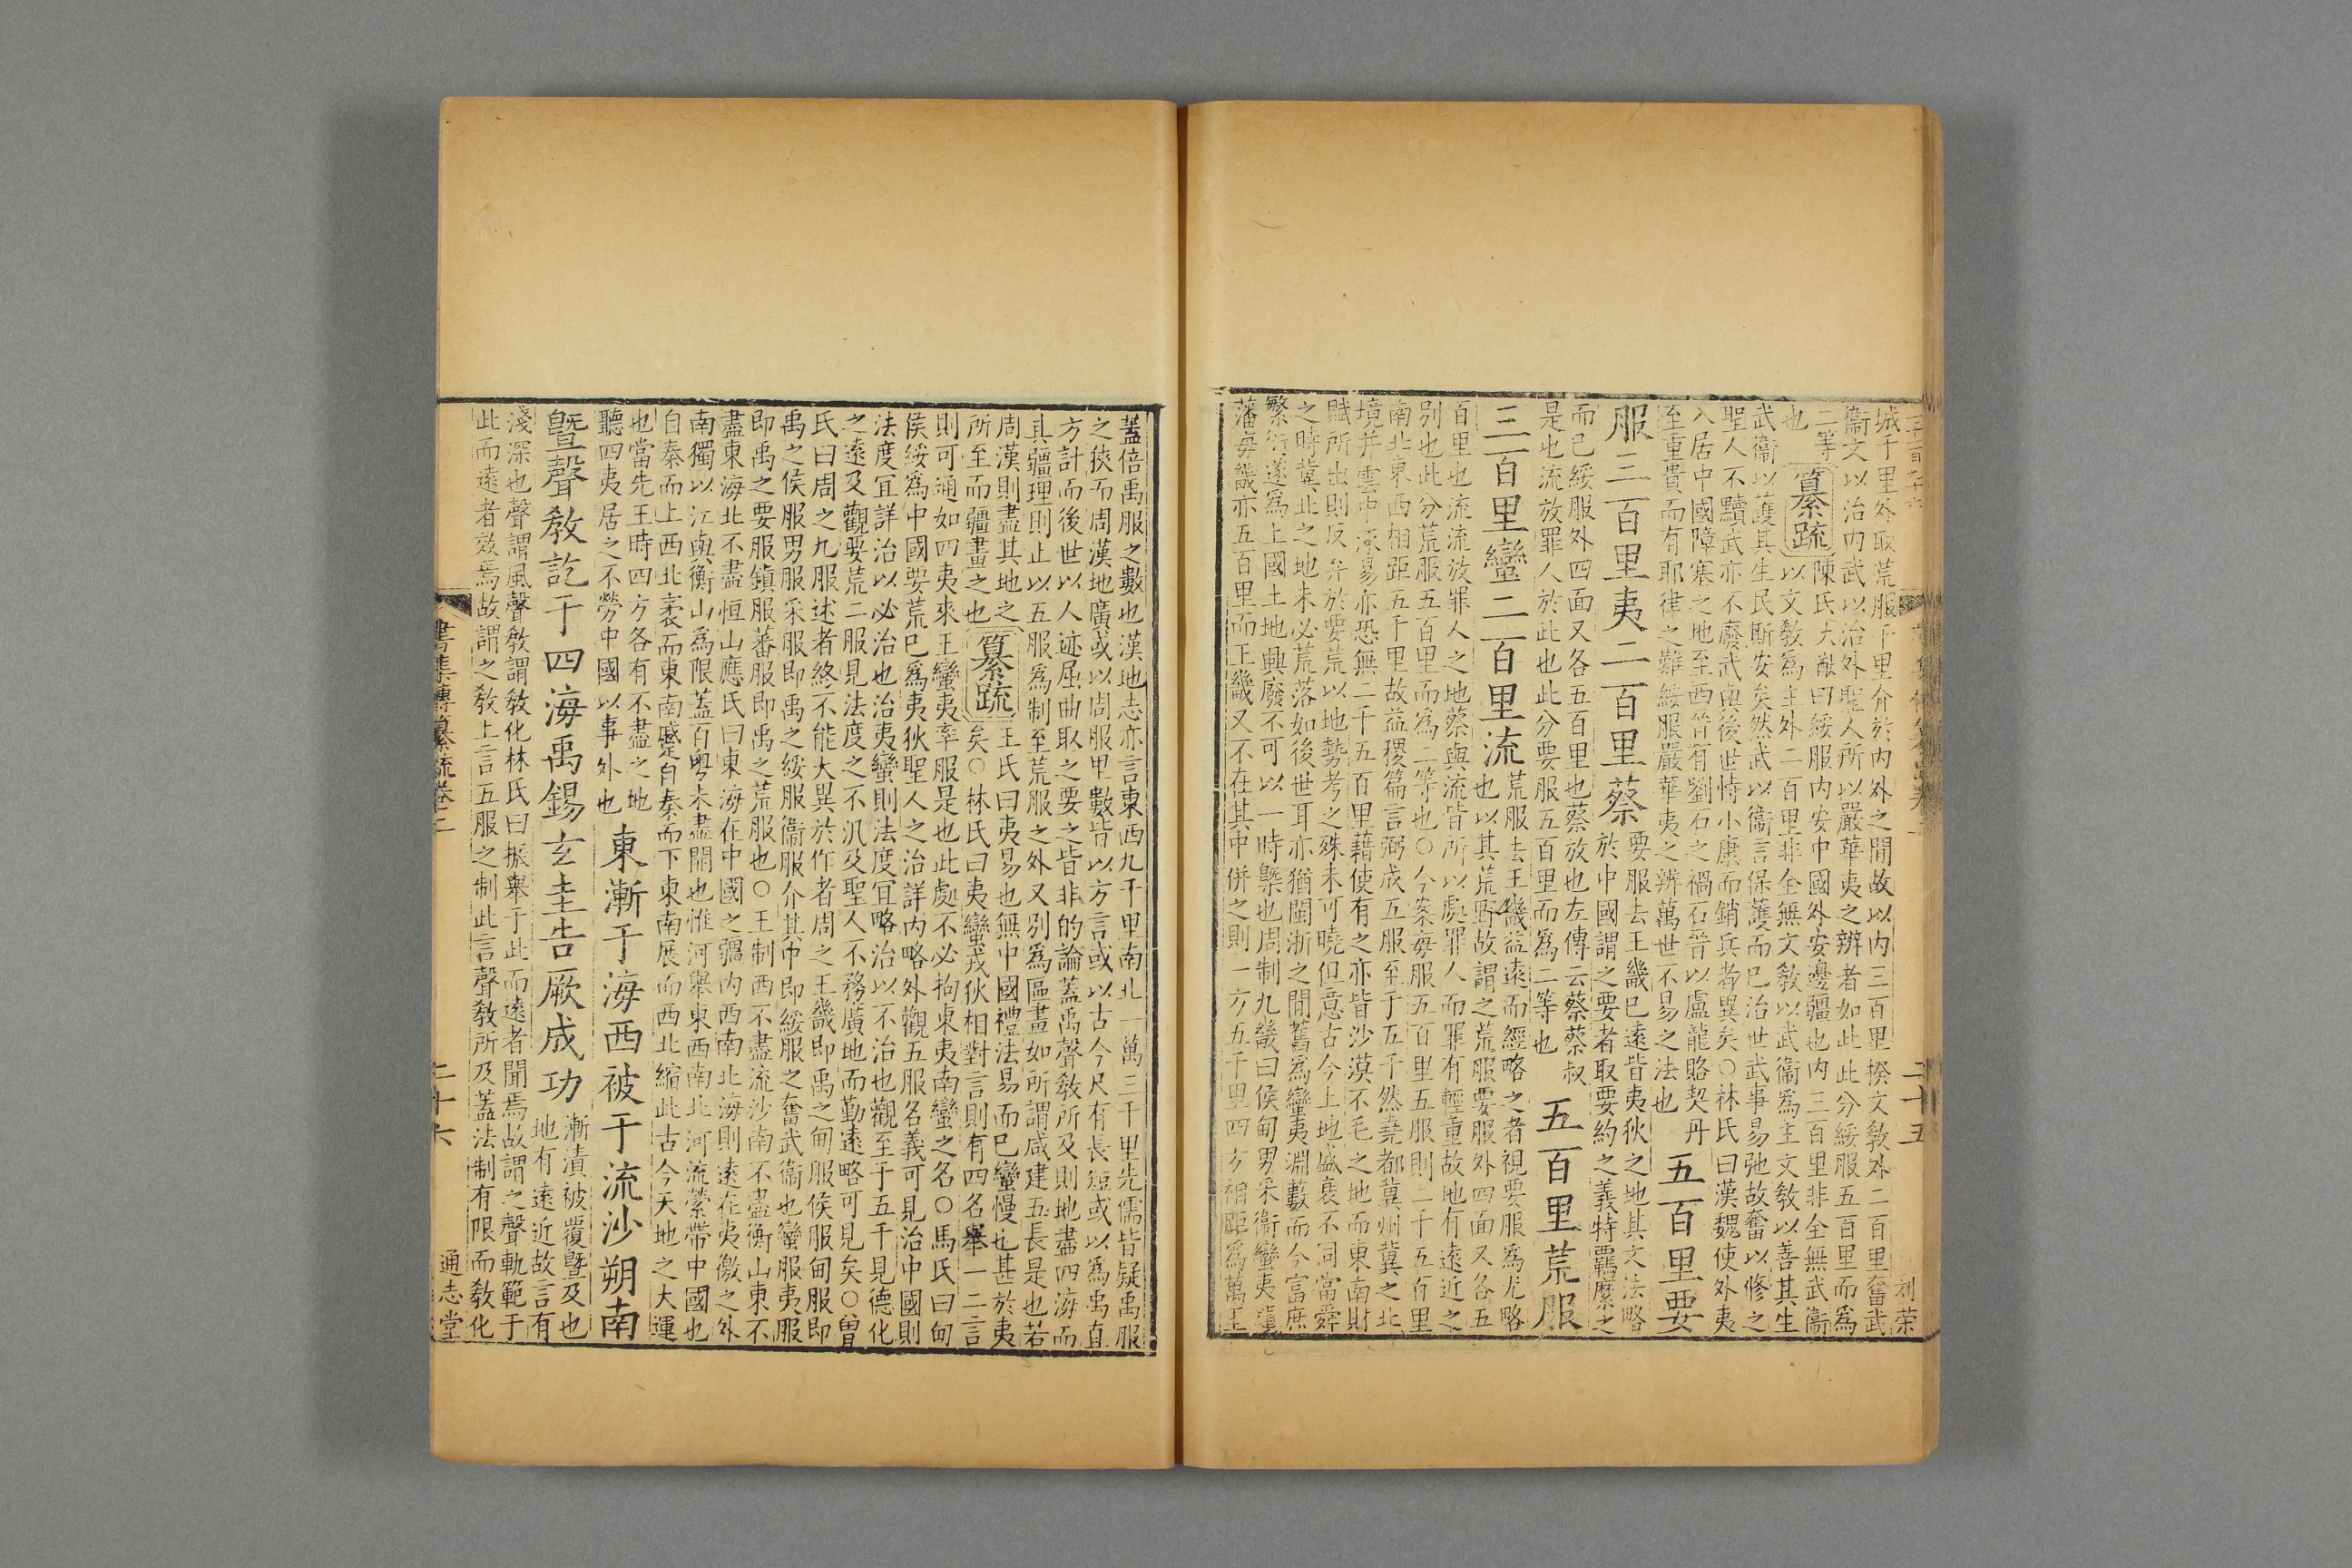 城千里外取荒服千里介於内外之閒故以内三百里揆文敎外二百里奮武
衞文以治内武以治外聖人所以嚴華夷之辨者如此此分綏服五百里而爲
二等
也
纂疏
陳氏大猷曰綏服内安中國外安邊疆也内三百里非全無武衞
以文敎爲主外二百里非全無文敎以武衞爲主文敎以善其生
武衞以護其生民斯安矣然武以衞言保護而已治世武事易弛故奮以修之
聖人不黷武亦不廢武與後世恃小康而銷兵者異矣○林氏曰漢魏使外夷
入居中國障塞之地至西晉有劉石之禍石晉以盧龍賂契丹
至重貴而有耶律之難綏服嚴華夷之辨萬世不易之法也
五百里要
服三百里夷二百里蔡
要服去王畿已遠皆夷狄之地其文法略
於中國謂之要者取要約之義特羈縻之
而已綏服外四面又各五百里也蔡放也左傳云蔡蔡叔
是也流放罪人於此也此分要服五百里而爲二等也
五百里荒服
三百里蠻二百里流
荒服去王畿益遠而經略之者視要服爲尤略
也以其荒野故謂之荒服要服外四面又各五
百里也流流放罪人之地蔡與流皆所以處罪人而罪有輕重故地有遠近之
別也此分荒服五百里而爲二等也○今案每服五百里五服則二千五百里
南北東西相距五千里故益稷篇言弼成五服至于五千然堯都冀州冀之北
境并雲中涿易亦恐無二千五百里藉使有之亦皆沙漠不毛之地而東南財
賦所出則反弃於要荒以地勢考之殊未可曉但意古今上地盛衰不同當舜
之時冀北之地未必荒落如後世耳亦猶閩浙之閒舊爲蠻夷淵藪而今富庶
繁衍遂爲上國土地興廢不可以一時槩也周制九畿曰侯甸男采衞蠻夷鎭
藩每畿亦五百里而王畿又不在其中併之則一方五千里四方相距爲萬里
二十五
刘荣
蓋倍禹服之數也漢地志亦言東西九千里南北一萬三千里先儒皆疑禹服
之狹而周漢地廣或以周服里數皆以方言或以古今尺有長短或以爲禹直
方計而後世以人迹屈曲取之要之皆非的論蓋禹聲敎所及則地盡四海而
其疆理則止以五服爲制至荒服之外又別爲區畫如所謂咸建五長是也若
周漢則盡其地之
所至而疆畫之也
纂疏
王氏曰夷易也無中國禮法易而已蠻慢也甚於夷
矣○林氏曰夷蠻戎狄相對言則有四名舉一二言
則可通如四夷來王蠻夷率服是也此處不必拘東夷南蠻之名○馬氏曰甸
侯綏爲中國要荒已爲夷狄聖人之治詳内略外觀五服名義可見治中國則
法度冝詳治以必治也治夷蠻則法度冝略治以不治也觀至于五千見德化
之遠及觀要荒二服見法度之不汎及聖人不務廣地而勤遠略可見矣○曾
氏曰周之九服述者終不能大異於作者周之王畿即禹之甸服侯服甸服即
禹之侯服男服采服即禹之綏服衞服介其中即綏服之奮武衞也蠻服夷服
即禹之要服鎭服蕃服即禹之荒服也○王制西不盡流沙南不盡衡山東不
盡東海北不盡恒山應氏曰東海在中國之疆内西南北海則遠在夷徼之外
南獨以江與衡山爲限蓋百粤未盡開也惟河舉東西南北河流縈帶中國也
自秦而上西北袤而東南蹙自秦而下東南展而西北縮此古今天地之大運
也當先王時四方各有不盡之地
聽四夷居之不勞中國以事外也
東漸于海西被于流沙朔南
曁聲敎訖于四海禹錫玄圭告厥成功
漸漬被覆曁及也
地有遠近故言有
淺深也聲謂風聲敎謂敎化林氏曰振舉于此而遠者聞焉故謂之聲軌範于
此而遠者效焉故謂之敎上言五服之制此言聲敎所及蓋法制有限而敎化
書集傳纂疏卷二
二十六
通志堂